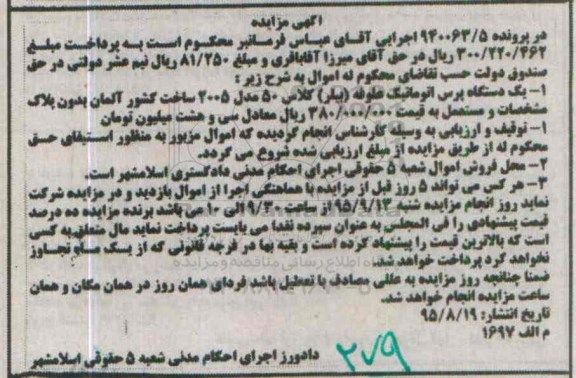 آگهی مزایده
در پرونده ۹۴۰۰۶۳/۵ اجرایی آقای عباس فرمانبر محکوم است به پرداخت مبلغ
۳۰۰/۲۲۰/۴۶۲ ریال در حق آقای میرزا آقاباقری و مبلغ ۸۱/۲۵۰ ریال نیم عشر دولتی در حق
صندوق دولت حسب تقاضای محکوم له اموال به شرح زیر :
۱- یک دستگاه پرس اتوماتیک علوفه (بیلر) کلاس ۵۰ مدل ۲۰۰۵ ساخت کشور آلمان بدون پلاک
مشخصات و مستعمل به قیمت ۳۸۰/۰۰۰/۰۰۰ ریال معادل سی و هشت میلیون تومان
۱- توقیف و ارزیابی به وسیله کارشناس انجام گردیده که اموال مزبور به منظور استیفای حق
محکوم له از طریق مزایده از مبلغ ارزیابی شده شروع می گردد.
۲- محل فروش اموال شعبه ۵ حقوقی اجرای احکام مدنی دادگستری اسلامشهر است.
۳- هر کس می تواند ۵ روز قبل از مزایده با هماهنگی اجرا از اموال بازدید و در مزایده شرکت
نماید روز انجام مزایده شنبه ۹۵/۹/۱۳ از ساعت ۹/۳۰ الی ۱۰ می باشد برنده مزایده ده درصد
قیمت پیشنهادی را فی المجلس به عنوان سپرده نقدا می بایست پرداخت نماید مال متعلق به کسی
است که بالاترین قیمت را پیشنهاد کرده است و بقیه بها در فرجه قانونی که از یک ماه تجاوز
نخواهد کرد پرداخت خواهد شد.
ضمنا چنانچه روز مزایده به عللی مصادف با تعطیل باشد فردای همان روز در همان مکان و همان
ساعت مزایده انجام خواهد شد.
تاریخ انتشار: ۹۵/۸/۱۹
م الف ۱۶۹۷
۲۷۹
دادورز اجرای احکام مدنی شعبه ۵ حقوقی اسلامشهر